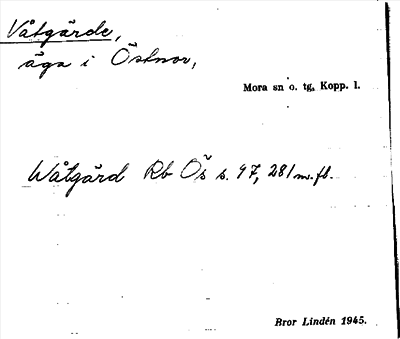 Våtgärde,
äga i Östnor,
Mora sn o. tg, Kopp. l.
Wåtgärd Rb Ös s. 97, 281 m.fl.
Bror Lindén 1945.